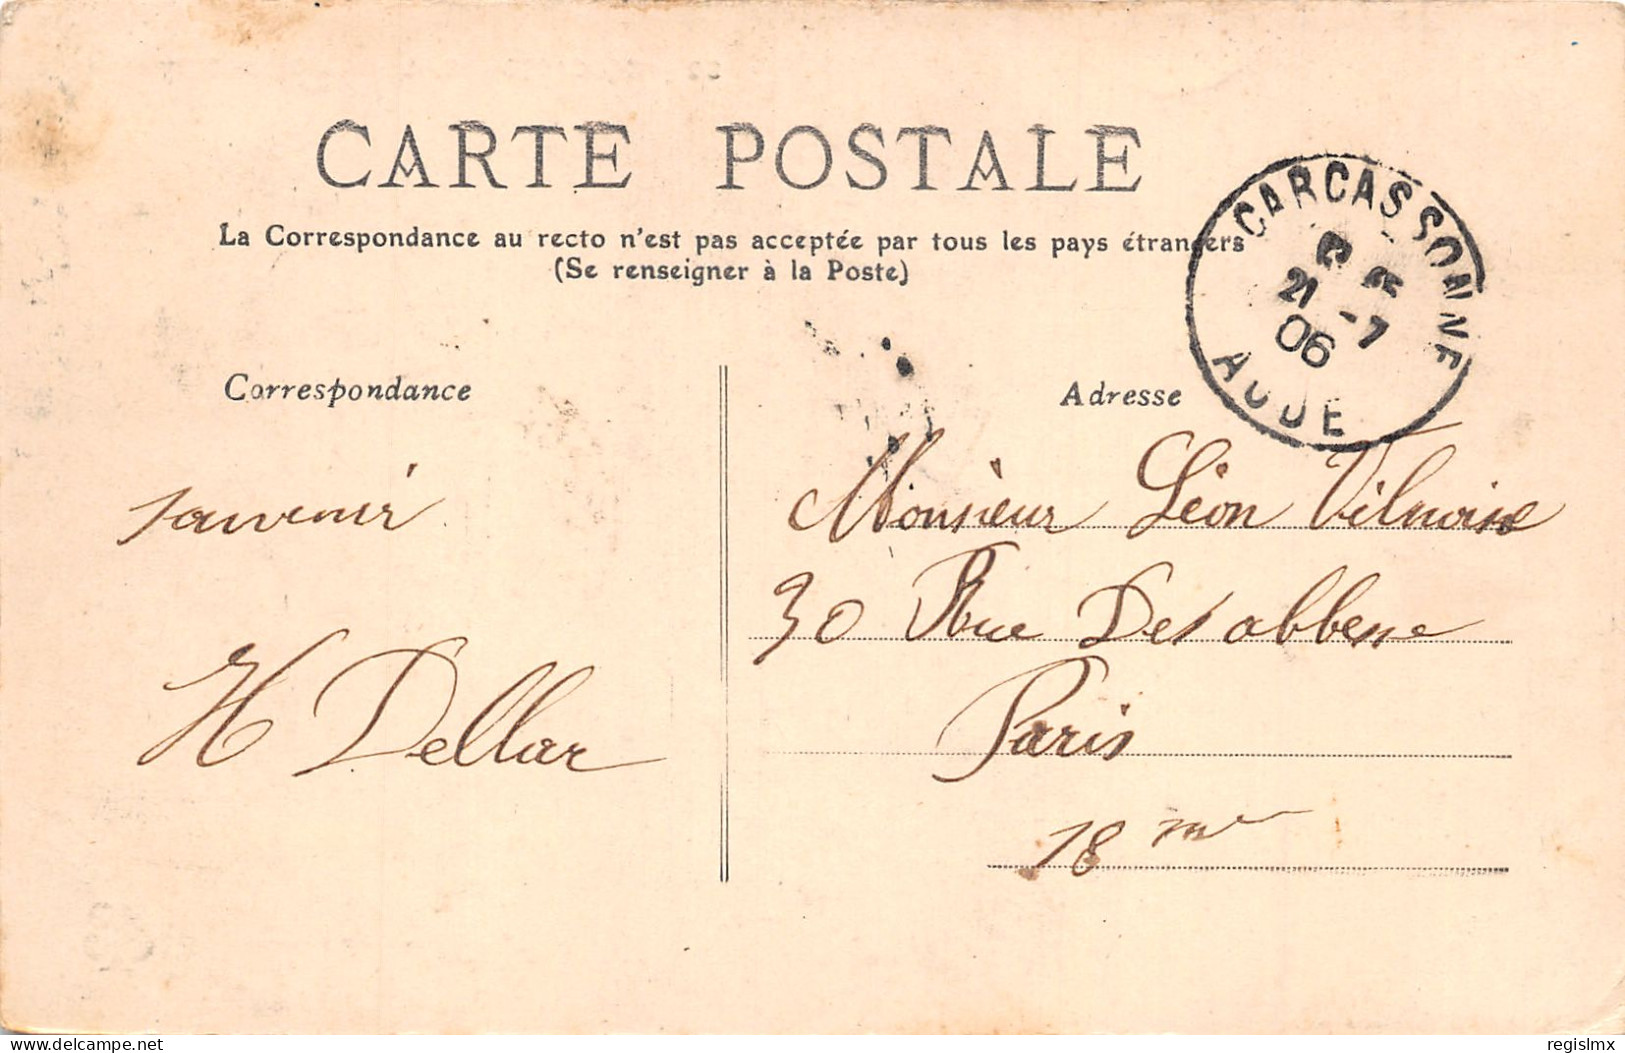 CARTE POSTALE
La Correspondance au recto n'est pas acceptée par tous les pays étrangers
(Se renseigner à la Poste)
CARCASSONNE
21 -7
06
AUDE
Correspondance
Adresse
souvenir
H Dellar
Monsieur Léon
30 Rue Des abbesse
Paris
18 me
delcampe.net
regislmx